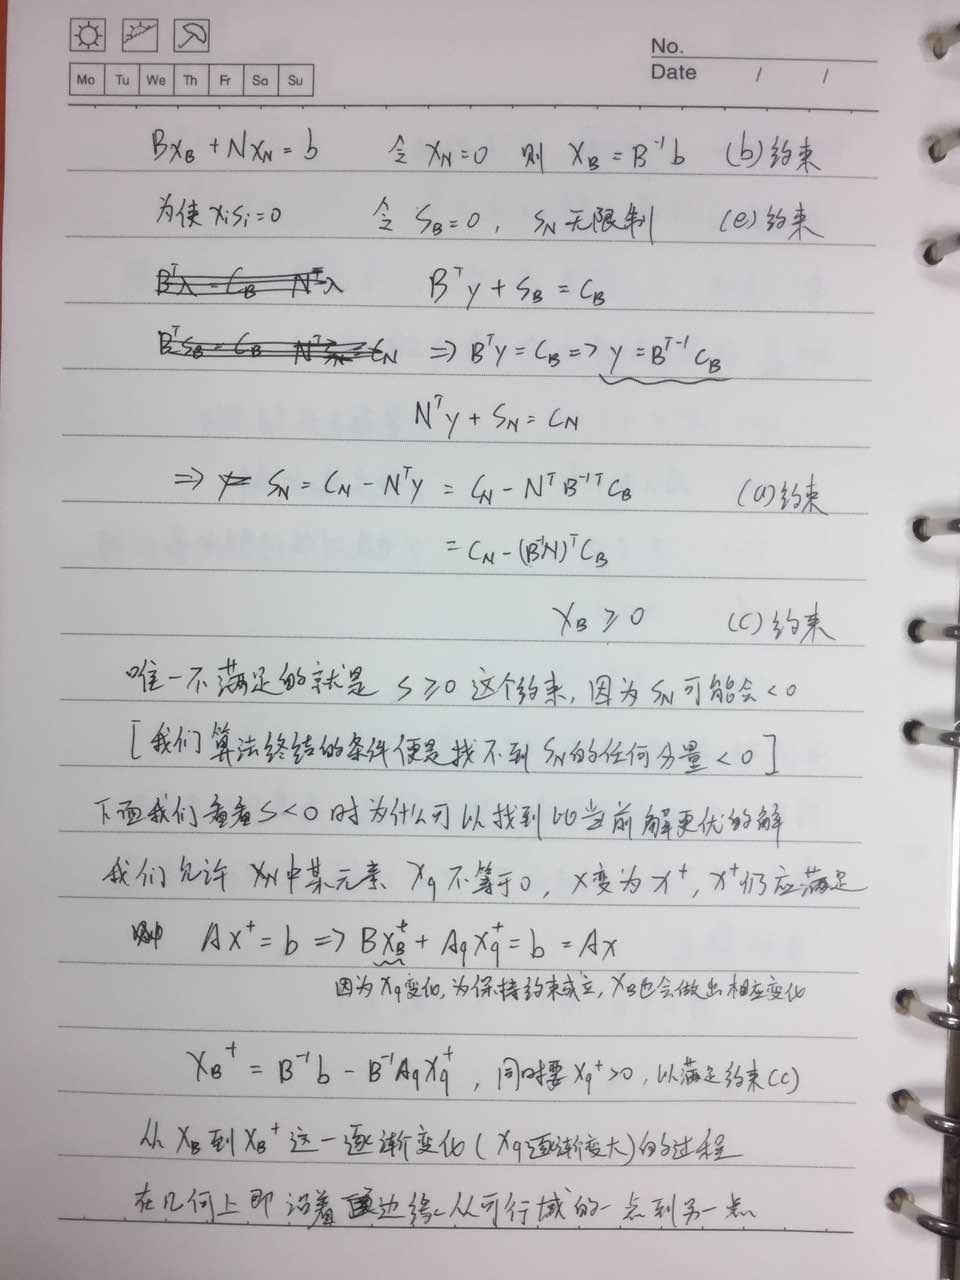 No.
Date / /
Mo Tu We Th Fr Sa Su
Bx_B + Nx_N = b 令 x_N = 0 则 x_B = B⁻¹b (b)约束
为使 x_i s_i = 0 令 s_B = 0, s_N 无限制 (e)约束
BᵀλC_B Nᵀλ Bᵀy + s_B = c_B
Bᵀs_B = C_B Nᵀs_N = C_N ⇒ Bᵀy = c_B ⇒ y = Bᵀ⁻¹c_B
Nᵀy + s_N = c_N
⇒ s_N = c_N - Nᵀy = c_N - NᵀB⁻¹ᵀc_B (a)约束
= c_N - (B⁻¹N)ᵀc_B
x_B ≥ 0 (c)约束
唯一不满足的就是 s ≥ 0 这个约束, 因为 s_N 可能会 < 0
[我们算法终结的条件便是找不到 s_N 的任何分量 < 0]
下面我们看看 s < 0 时为什么可以找到比当前解更优的解
我们允许 x_N 中某元素 x_q 不等于0, x变为 x⁺, x⁺仍应满足
Ax⁺ = b ⇒ Bx_B⁺ + A_q x_q⁺ = b = Ax
因为 x_q 变化, 为保持约束成立, x_B也会做出相应变化
x_B⁺ = B⁻¹b - B⁻¹A_q x_q⁺, 同时要 x_q⁺ > 0, 以满足约束(c)
从 x_B 到 x_B⁺ 这一逐渐变化 (x_q逐渐变大) 的过程
在几何上即沿着边缘从可行域的一点到另一点